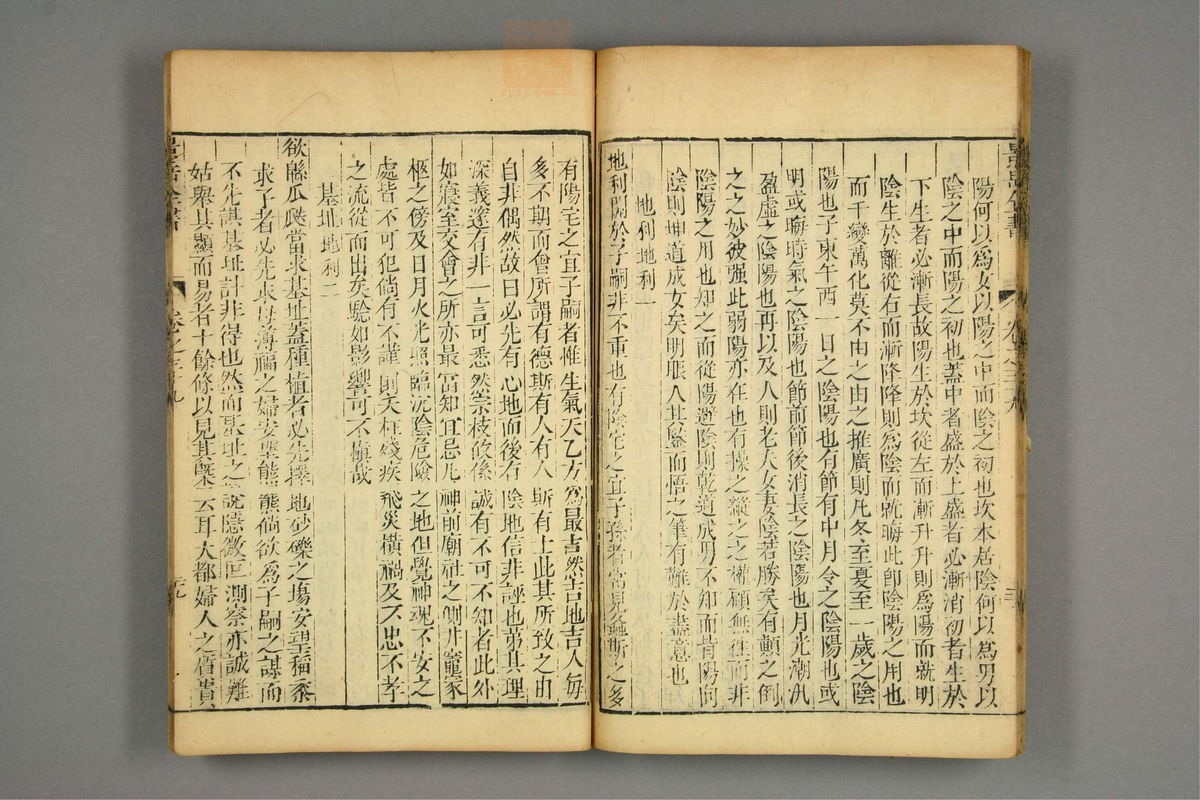 陽何以爲女以陽之中而陰之初也坎本居陰何以爲男以
陰之中而陽之初也蓋中者盛於上盛者必漸消初者生於
下生者必漸長故陽生於坎從左而漸升升則爲陽而就明
陰生於離從右而漸降降則爲陰而就晦此卽陰陽之用也
而千變萬化莫不由之由之推廣則凡冬至夏至一歲之陰
陽也子東午西一日之陰陽也有節有中月令之陰陽也或
明或晦時氣之陰陽也節前節後消長之陰陽也月光潮汛
盈虛之陰陽也再以及人則老夫女妻陰若勝矣有顛之倒
之之妙彼强此弱陽亦在也有操之縱之之權顧無往而非
陰陽之用也知之而從陽避陰則乾道成男不知而背陽向
陰則坤道成女矣明眼人其鑒而悟之筆有難於盡意也
地利地利一
地利關於子嗣非不重也有陰宅之宜子孫者常見螽斯之多
有陽宅之宜子嗣者惟生氣天乙方爲最吉然吉地吉人每
多不期而會所謂有德斯有人有人斯有土此其所致之由
自非偶然故曰必先有心地而後有陰地信非誣也第其理
深義邃有非一言可悉然宗枝攸係誠有不可不知者此外
如寢室交會之所亦最當知宜忌凡神前廟社之側井竈冢
柩之傍及日月火光照臨沉陰危險之地但覺神魂不安之
處皆不可犯倘有不謹則夭枉殘疾飛災橫禍及不忠不孝
之流從而出矣驗如影響可不愼哉
基址地利二
欲緜瓜瓞當求基址蓋種植者必先擇地砂礫之塲安望稻黍
求子者必先求母薄福之婦安望熊羆倘欲爲子嗣之謀而
不先謀基址計非得也然而基址之說隱微叵測察亦誠難
姑舉其顯而易者十餘條以見其槩云耳大都婦人之質貴
景岳全書
景岳全書
卷之三十九
卷之三十九